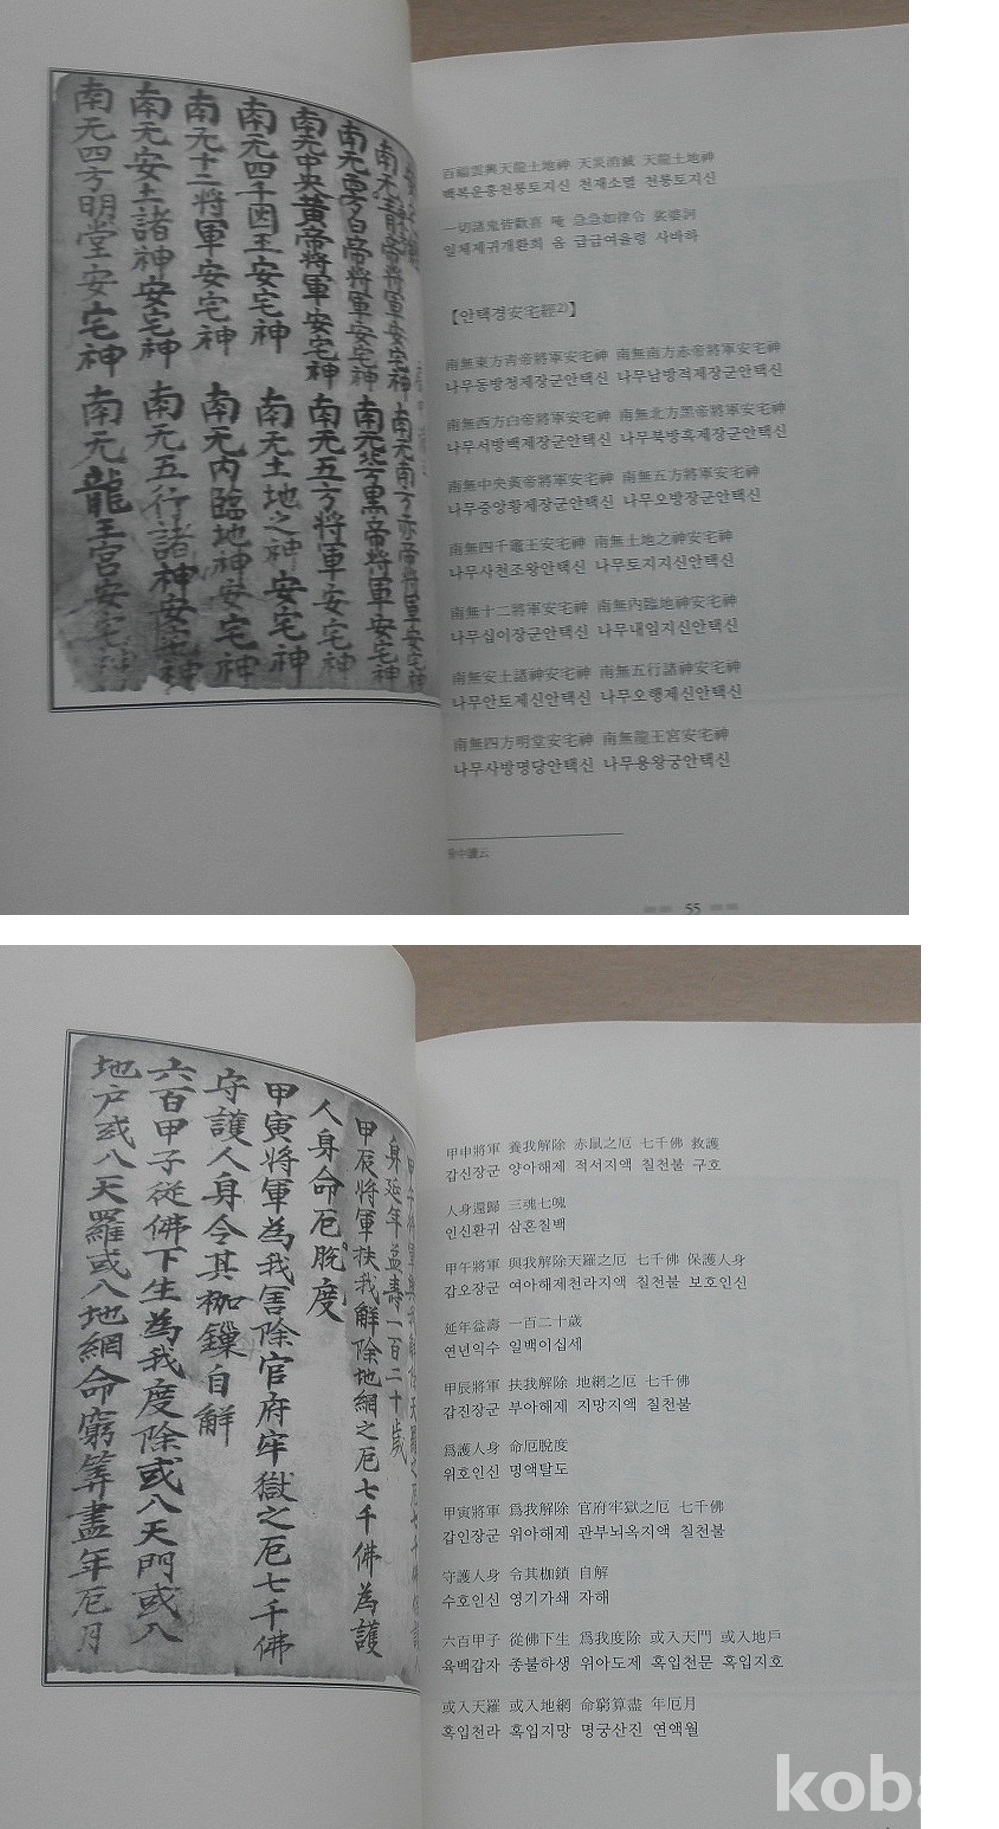 南无四方明堂安宅神
南无安土諸神安宅神
南无十二將軍安宅神
南无四千図王安宅神
南无中央黃帝將軍安宅神
南无龍王宮安宅
南无五行諸神安宅神
南无內臨地神安宅神
南无土地之神安宅神
南无五方將軍安宅神
百福雲興天龍土地神 天災消滅 天龍土地神
백복운흥천룡토지신 천재소멸 천룡토지신
一切諸鬼皆歡喜 唵 急急如律令 娑婆訶
일체제귀개환희 옴 급급여율령 사바하
【안택경安宅經2)】
南無東方靑帝將軍安宅神 南無南方赤帝將軍安宅神
나무동방청제장군안택신 나무남방적제장군안택신
南無西方白帝將軍安宅神 南無北方黑帝將軍安宅神
나무서방백제장군안택신 나무북방흑제장군안택신
南無中央黃帝將軍安宅神 南無五方將軍安宅神
나무중앙황제장군안택신 나무오방장군안택신
南無四千竈王安宅神 南無土地之神安宅神
나무사천조왕안택신 나무토지지신안택신
南無十二將軍安宅神 南無內臨地神安宅神
나무십이장군안택신 나무내임지신안택신
南無安土諸神安宅神 南無五行諸神安宅神
나무안토제신안택신 나무오행제신안택신
南無四方明堂安宅神 南無龍王宮安宅神
나무사방명당안택신 나무용왕궁안택신
55
身延年益壽一百二十歲
甲辰將軍扶我解除地網之厄七千佛為護
人身命厄脫度
甲寅將軍為我害除官府牢獄之厄七千佛
守護人身令其枷鏁自解
六百甲子從佛下生為我度除或八天門或八
地户或八天羅或八地網命窮筭盡年厄月
甲申將軍 養我解除 赤鼠之厄 七千佛 救護
갑신장군 양아해제 적서지액 칠천불 구호
人身還歸 三魂七魄
인신환귀 삼혼칠백
甲午將軍 與我解除天羅之厄 七千佛 保護人身
갑오장군 여아해제천라지액 칠천불 보호인신
延年益壽 一百二十歲
연년익수 일백이십세
甲辰將軍 扶我解除 地網之厄 七千佛
갑진장군 부아해제 지망지액 칠천불
爲護人身 命厄脫度
위호인신 명액탈도
甲寅將軍 爲我解除 官府牢獄之厄 七千佛
갑인장군 위아해제 관부뇌옥지액 칠천불
守護人身 令其枷鎖 自解
수호인신 영기가쇄 자해
六百甲子 從佛下生 爲我度除 或入天門 或入地戶
육백갑자 종불하생 위아도제 혹입천문 혹입지호
或入天羅 或入地網 命窮算盡 年厄月
혹입천라 혹입지망 명궁산진 연액월